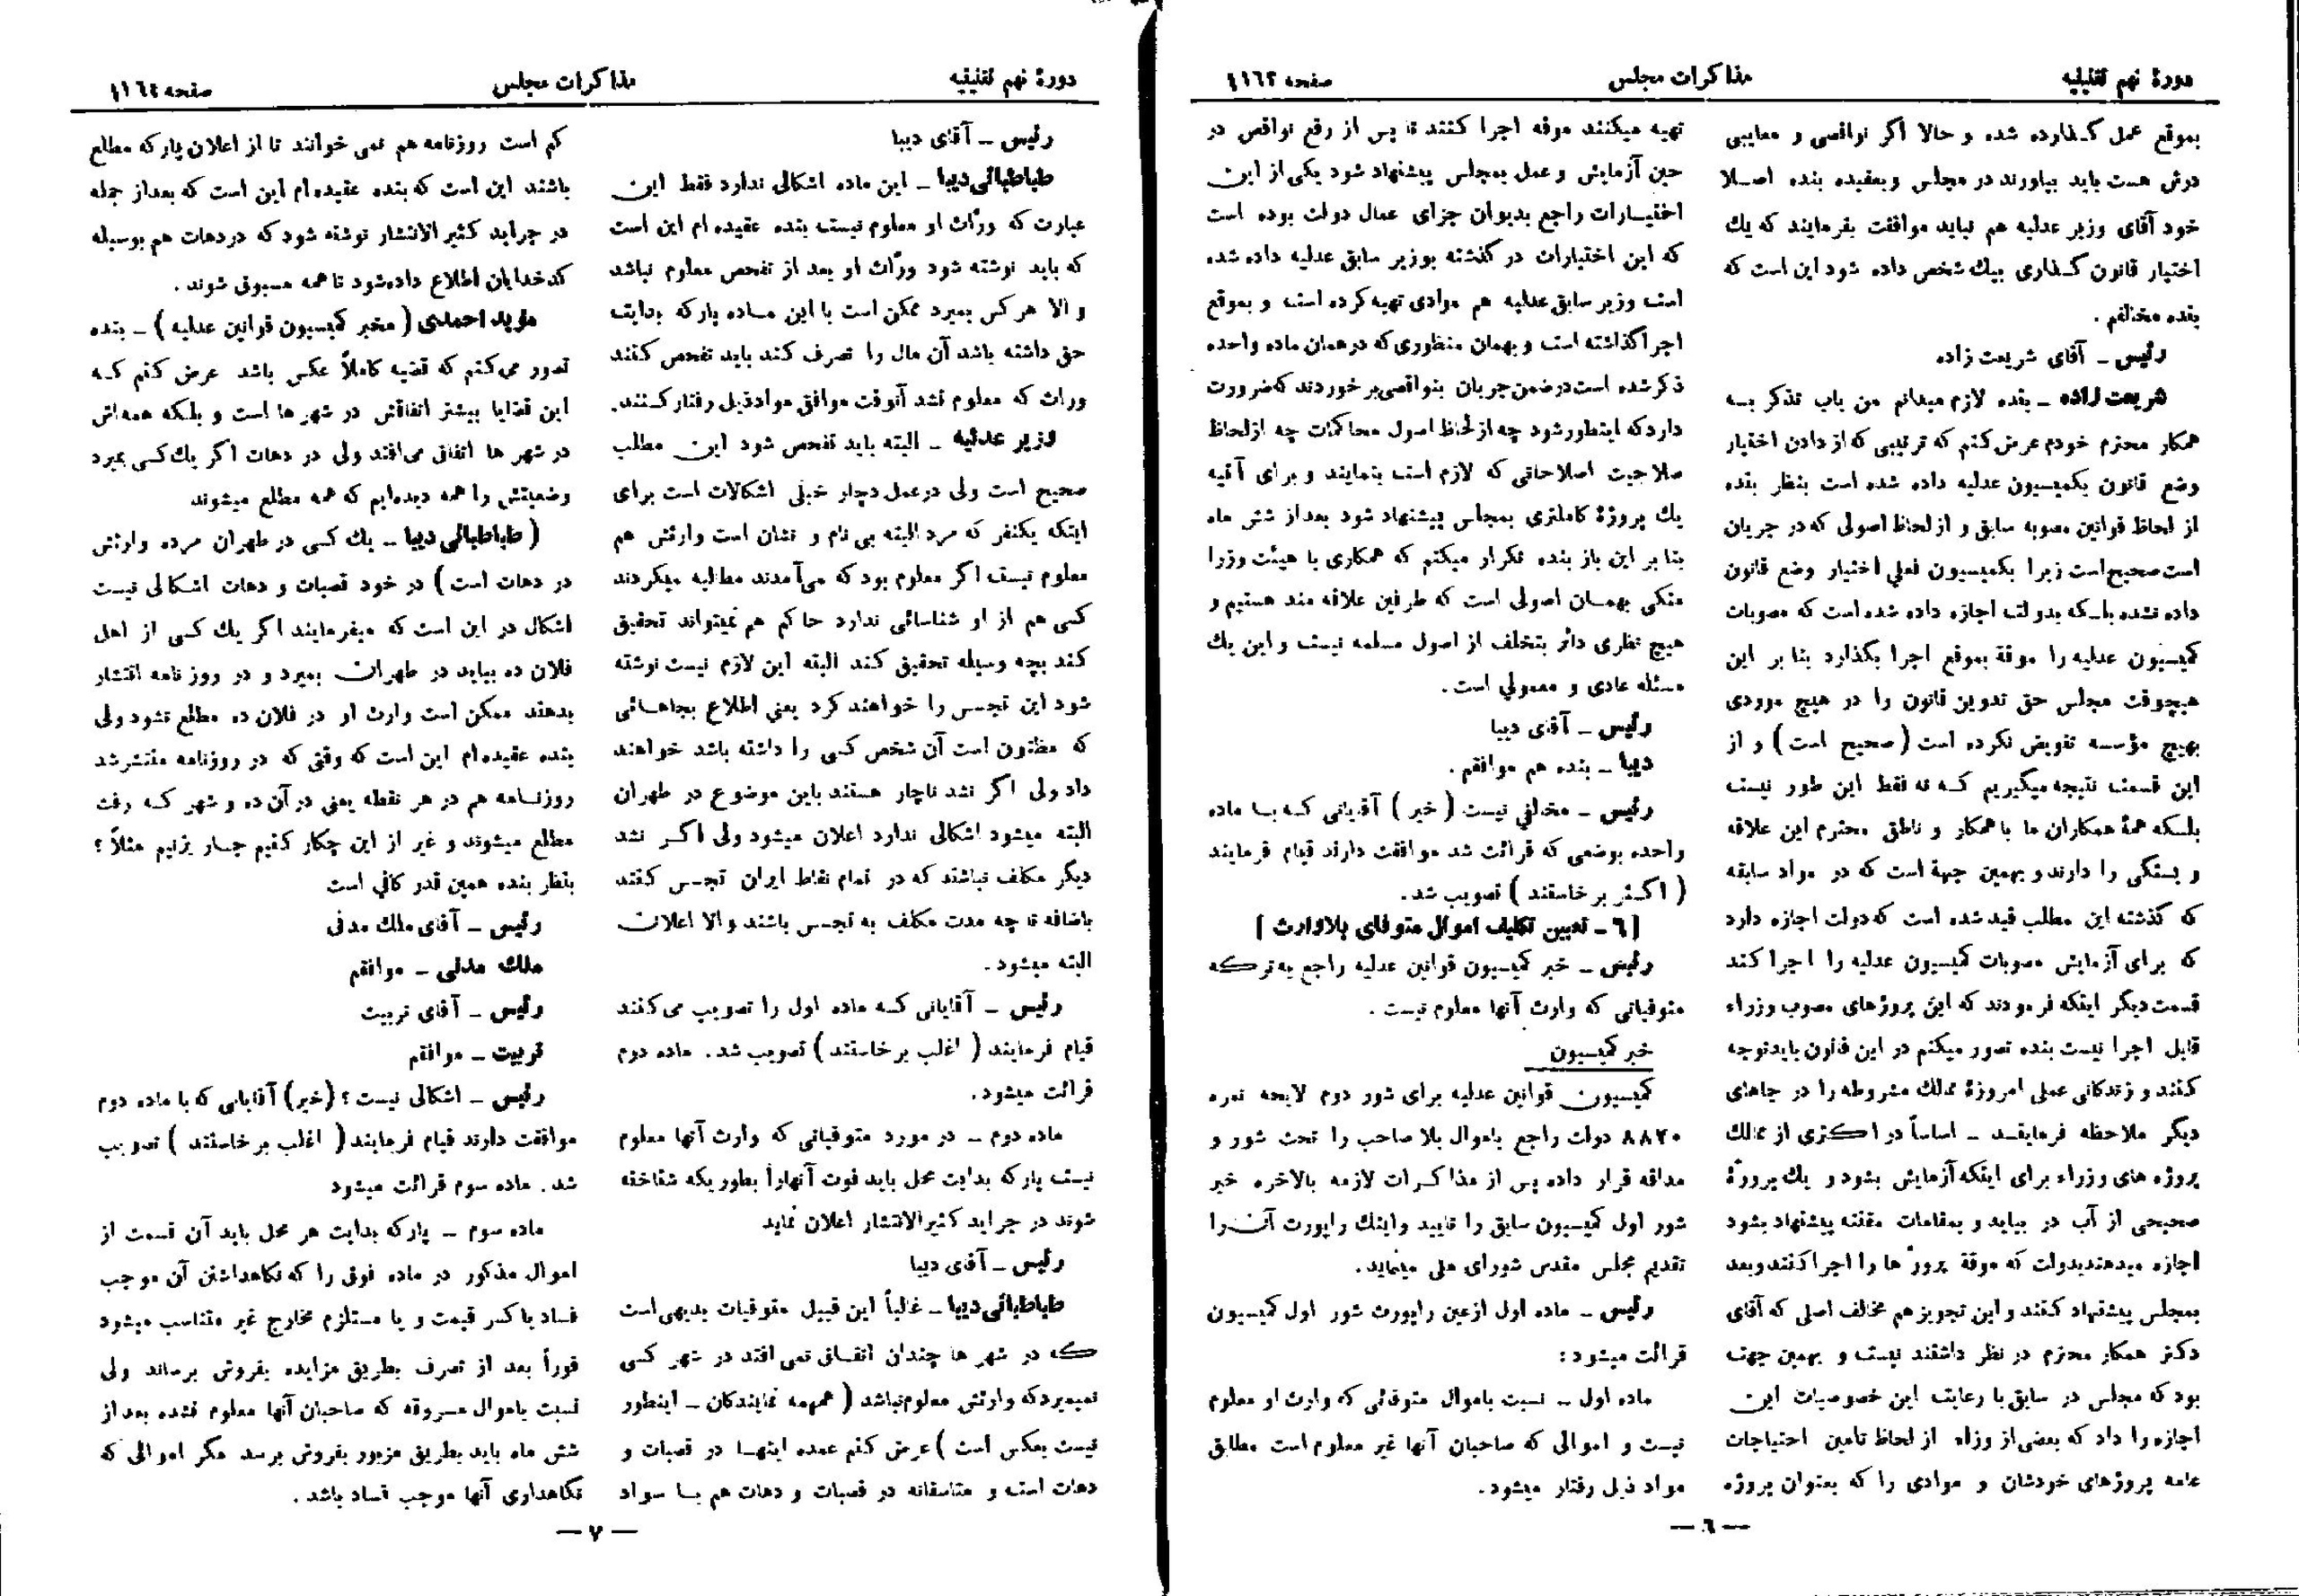 دورهٔ نهم تقنینیه
مذاکرات مجلس
صفحه ۱۱۶۳
بموقع عمل گـذارده شده و حالا اگر نواقصی و معایبی
درش هست باید بیاورند در مجلس وبعقیده بنده اصـلا
خود آقای وزیر عدلیه هم نباید موافقت بفرمایند که یك
اختیار قانون گـذاری بیك شخص داده شود این است که
بنده مخالفم .
رئیس ــ آقای شریعت زاده
شریعت زاده ــ بنده لازم میدانم من باب تذکر بـه
همکار محترم خودم عرض کنم که ترتیبی که از دادن اختیار
وضع قانون بکمیسیون عدلیه داده شده است بنظر بنده
از لحاظ قوانین مصوبه سابق و از لحاظ اصولی که در جریان
است صحیح است زیرا بکمیسیون فعلی اختیار وضع قانون
داده نشده بلـکه بدولت اجازه داده شده است که مصوبات
کمیسیون عدلیه را موقة بموقع اجرا بگذارد بنا بر این
هیچوقت مجلس حق تدوین قانون را در هیچ موردی
بهیچ مؤسسه تفویض نکرده است ( صحیح است ) و از
این قسمت نتیجه میگیریم کـه نه فقط این طور نیست
بلـکه همهٔ همکاران ما با همکار و ناطق محترم این علاقه
و بستگی را دارند و بهمین جهة است که در مواد سابقه
که گذشته این مطلب قید شده است که دولت اجازه دارد
که برای آزمایش مصوبات کمیسیون عدلیه را اجرا کند
قسمت دیگر اینکه فرمودند که این پروژهای مصوب وزراء
قابل اجرا نیست بنده تصور میکنم در این قانون باید توجه
کنند و زندگانی عملی امروزهٔ ممالك مشروطه را در جاهای
دیگر ملاحظه فرمایـنـد ــ اساساً در اکثری از ممالك
پروژه های وزراء برای اینکه آزمایش بشود و یك پروژهٔ
صحیحی از آب در بیاید و بمقامات مقننه پیشنهاد بشود
اجازه میدهند بدولت که موقة پروژه ها را اجرا کنند و بعد
بمجلس پیشنهاد کنند و این تجویز هم مخالف اصلی که آقای
دکتر همکار محترم در نظر داشتند نیست و بهمین جهت
بود که مجلس در سابق با رعایت این خصوصیات این
اجازه را داد که بعضی از وزراء از لحاظ تأمین احتیاجات
عامه پروژهای خودشان و موادی را که بعنوان پروژه
تهیه میکنند موقه اجرا کنند تا پس از رفع نواقص در
حین آزمایش و عمل بمجلس پیشنهاد شود یکی از این
اختیـارات راجع بدیوان جزای عمال دولت بوده است
که این اختیارات در گذشته بوزیر سابق عدلیه داده شده
است وزیر سابق عدلیه هم موادی تهیه کرده است و بموقع
اجرا گذاشته است و بهمان منظوری که در همان ماده واحده
ذکر شده است در ضمن جریان بنواقصی بر خوردند که ضرورت
دارد که اینطور شود چه از لحاظ اصول محاکمات چه از لحاظ
صلاحیت اصلاحاتی که لازم است بنمایند و برای آتیه
یك پروژهٔ کاملتری بمجلس پیشنهاد شود بعد از شش ماه
بنا بر این باز بنده تکرار میکنم که همکاری با هیئت وزرا
متکی بهمـان اصولی است که طرفین علاقه مند هستیم و
هیچ نظری دائر بتخلف از اصول مسلمه نیست و این یك
مسئله عادی و معمولی است .
رئیس ــ آقای دیبا
دیبا ــ بنده هم موافقم .
رئیس ــ مخالفی نیست ( خیر ) آقایانی کـه بـا ماده
واحده بوضعی که قرائت شد موافقت دارند قیام فرمایند
( اکـثر بر خاستند ) تصویب شد .
[ ۶ ــ تعیین تکلیف اموال متوفای بلاوارث ]
رئیس ــ خبر کمیسیون قوانین عدلیه راجع به ترکه
متوفیاتی که وارث آنها معلوم نیست .
خبر کمیسیون
کمیسیون قوانین عدلیه برای شور دوم لایحه نمره
۸۸۲۰ دولت راجع باموال بلا صاحب را تحت شور و
مداقه قرار داده پس از مذاکـرات لازمه بالاخره خبر
شور اول کمیسیون سابق را تایید و اینك راپورت آن را
تقدیم مجلس مقدس شورای ملی مینماید .
رئیس ــ ماده اول از عین راپورت شور اول کمیسیون
قرائت میشود :
ماده اول ــ نسبت باموال متوفائی که وارث او معلوم
نیست و اموالی که صاحبان آنها غیر معلوم است مطابق
مواد ذیل رفتار میشود .
— ۶ —
دورهٔ نهم تقنینیه
مذاکرات مجلس
صفحه ۱۱۶۴
رئیس ــ آقای دیبا
طباطبائی دیبا ــ این ماده اشکالی ندارد فقط این
عبارت که ورّاث او معلوم نیست بنده عقیده ام این است
که باید نوشته شود ورّاث او بعد از تفحص معلوم نباشد
و الا هر کس بمیرد ممکن است با این مـاده پارکه بدایت
حق داشته باشد آن مال را تصرف کند باید تفحص کنند
وراث که معلوم نشد آنوقت موافق مواد قبل رفتار کـنند.
وزیر عدلیه ــ البته باید تفحص شود این مطلب
صحیح است ولی در عمل دچار خیلی اشکالات است برای
اینکه یکنفر که مرد البته بی نام و نشان است وارثش هم
معلوم نیست اگر معلوم بود که می آمدند مطالبه میکردند
کسی هم از او شناسائی ندارد حاکم هم نمیتواند تحقیق
کند بچه وسیله تحقیق کند البته این لازم نیست نوشته
شود این تجسس را خواهند کرد یعنی اطلاع بجاهـائی
که مظنون است آن شخص کسی را داشته باشد خواهند
داد ولی اگر نشد ناچار هستند باین موضوع در طهران
البته میشود اشکالی ندارد اعلان میشود ولی اگـر نشد
دیگر مکلف نباشند که در تمام نقاط ایران تجسس کنند
باضافه تا چه مدت مکلف به تجسس باشند و الا اعلان
البته میشود .
رئیس ــ آقایانی کـه ماده اول را تصویب می کنند
قیام فرمایند ( اغلب بر خاستند ) تصویب شد . ماده دوم
قرائت میشود .
ماده دوم ــ در مورد متوفیاتی که وارث آنها معلوم
نیست پارکه بدایت محل باید فوت آنهارا بطوریکه شناخته
شوند در جراید کثیرالانتشار اعلان نماید
رئیس ــ آقای دیبا
طباطبائی دیبا ــ غالباً این قبیل متوفیات بدیهی است
که در شهر ها چندان اتفـاق نمی افتد در شهر کسی
نمیمیرد که وارثش معلوم نباشد ( همهمه نمایندگان ــ اینطور
نیست بعکس است ) عرض کنم عمده اینهـا در قصبات و
دهات است و متاسفانه در قصبات و دهات هم بـا سواد
کم است روزنامه هم نمی خوانند تا از اعلان پارکه مطلع
باشند این است که بنده عقیده ام این است که بعد از جمله
در جراید کثیر الانتشار نوشته شود که در دهات هم بوسیله
کدخدایان اطلاع داده شود تا همه مسبوق شوند .
مؤید احمدی ( مخبر کمیسیون قوانین عدلیه ) ــ بنده
تصور می کنم که قضیه کاملاً عکس باشد عرض کنم کـه
این قضایا بیشتر اتفاقش در شهر ها است و بلـکه همه اش
در شهر ها اتفاق می افتد ولی در دهات اگر یك کسی بمیرد
وضعیتش را همه دیده ایم که همه مطلع میشوند
( طباطبائی دیبا ــ یك کسی در طهران مرده وارثش
در دهات است ) در خود قصبات و دهات اشکالی نیست
اشکال در این است که میفرمایند اگر یك کسی از اهل
فلان ده بیاید در طهران بمیرد و در روز نامه انتشار
بدهند ممکن است وارث او در فلان ده مطلع نشود ولی
بنده عقیده ام این است که وقتی که در روزنامه منتشر شد
روزنـامه هم در هر نقطه یعنی در آن ده و شهر کـه رفت
مطلع میشوند و غیر از این چکار کنیم جـار بزنیم مثلاً ؟
بنظر بنده همین قدر کافی است
رئیس ــ آقای ملك مدنی
ملك مدنی ــ موافقم
رئیس ــ آقای تربیت
تربیت ــ موافقم
رئیس ــ اشکالی نیست ؟ (خیر) آقایانی که با ماده دوم
موافقت دارند قیام فرمایند ( اغلب بر خاستند ) تصویب
شد . ماده سوم قرائت میشود
ماده سوم ــ پارکه بدایت هر محل باید آن قسمت از
اموال مذکور در ماده فوق را که نگاهداشتن آن موجب
فساد یا کسر قیمت و یا مستلزم مخارج غیر متناسب میشود
فوراً بعد از تصرف بطریق مزایده بفروش برساند ولی
نسبت باموال مسروقه که صاحبان آنها معلوم نشده بعد از
شش ماه باید بطریق مزبور بفروش برسد مگر اموالی که
نگاهداری آنها موجب فساد باشد .
— ۷ —